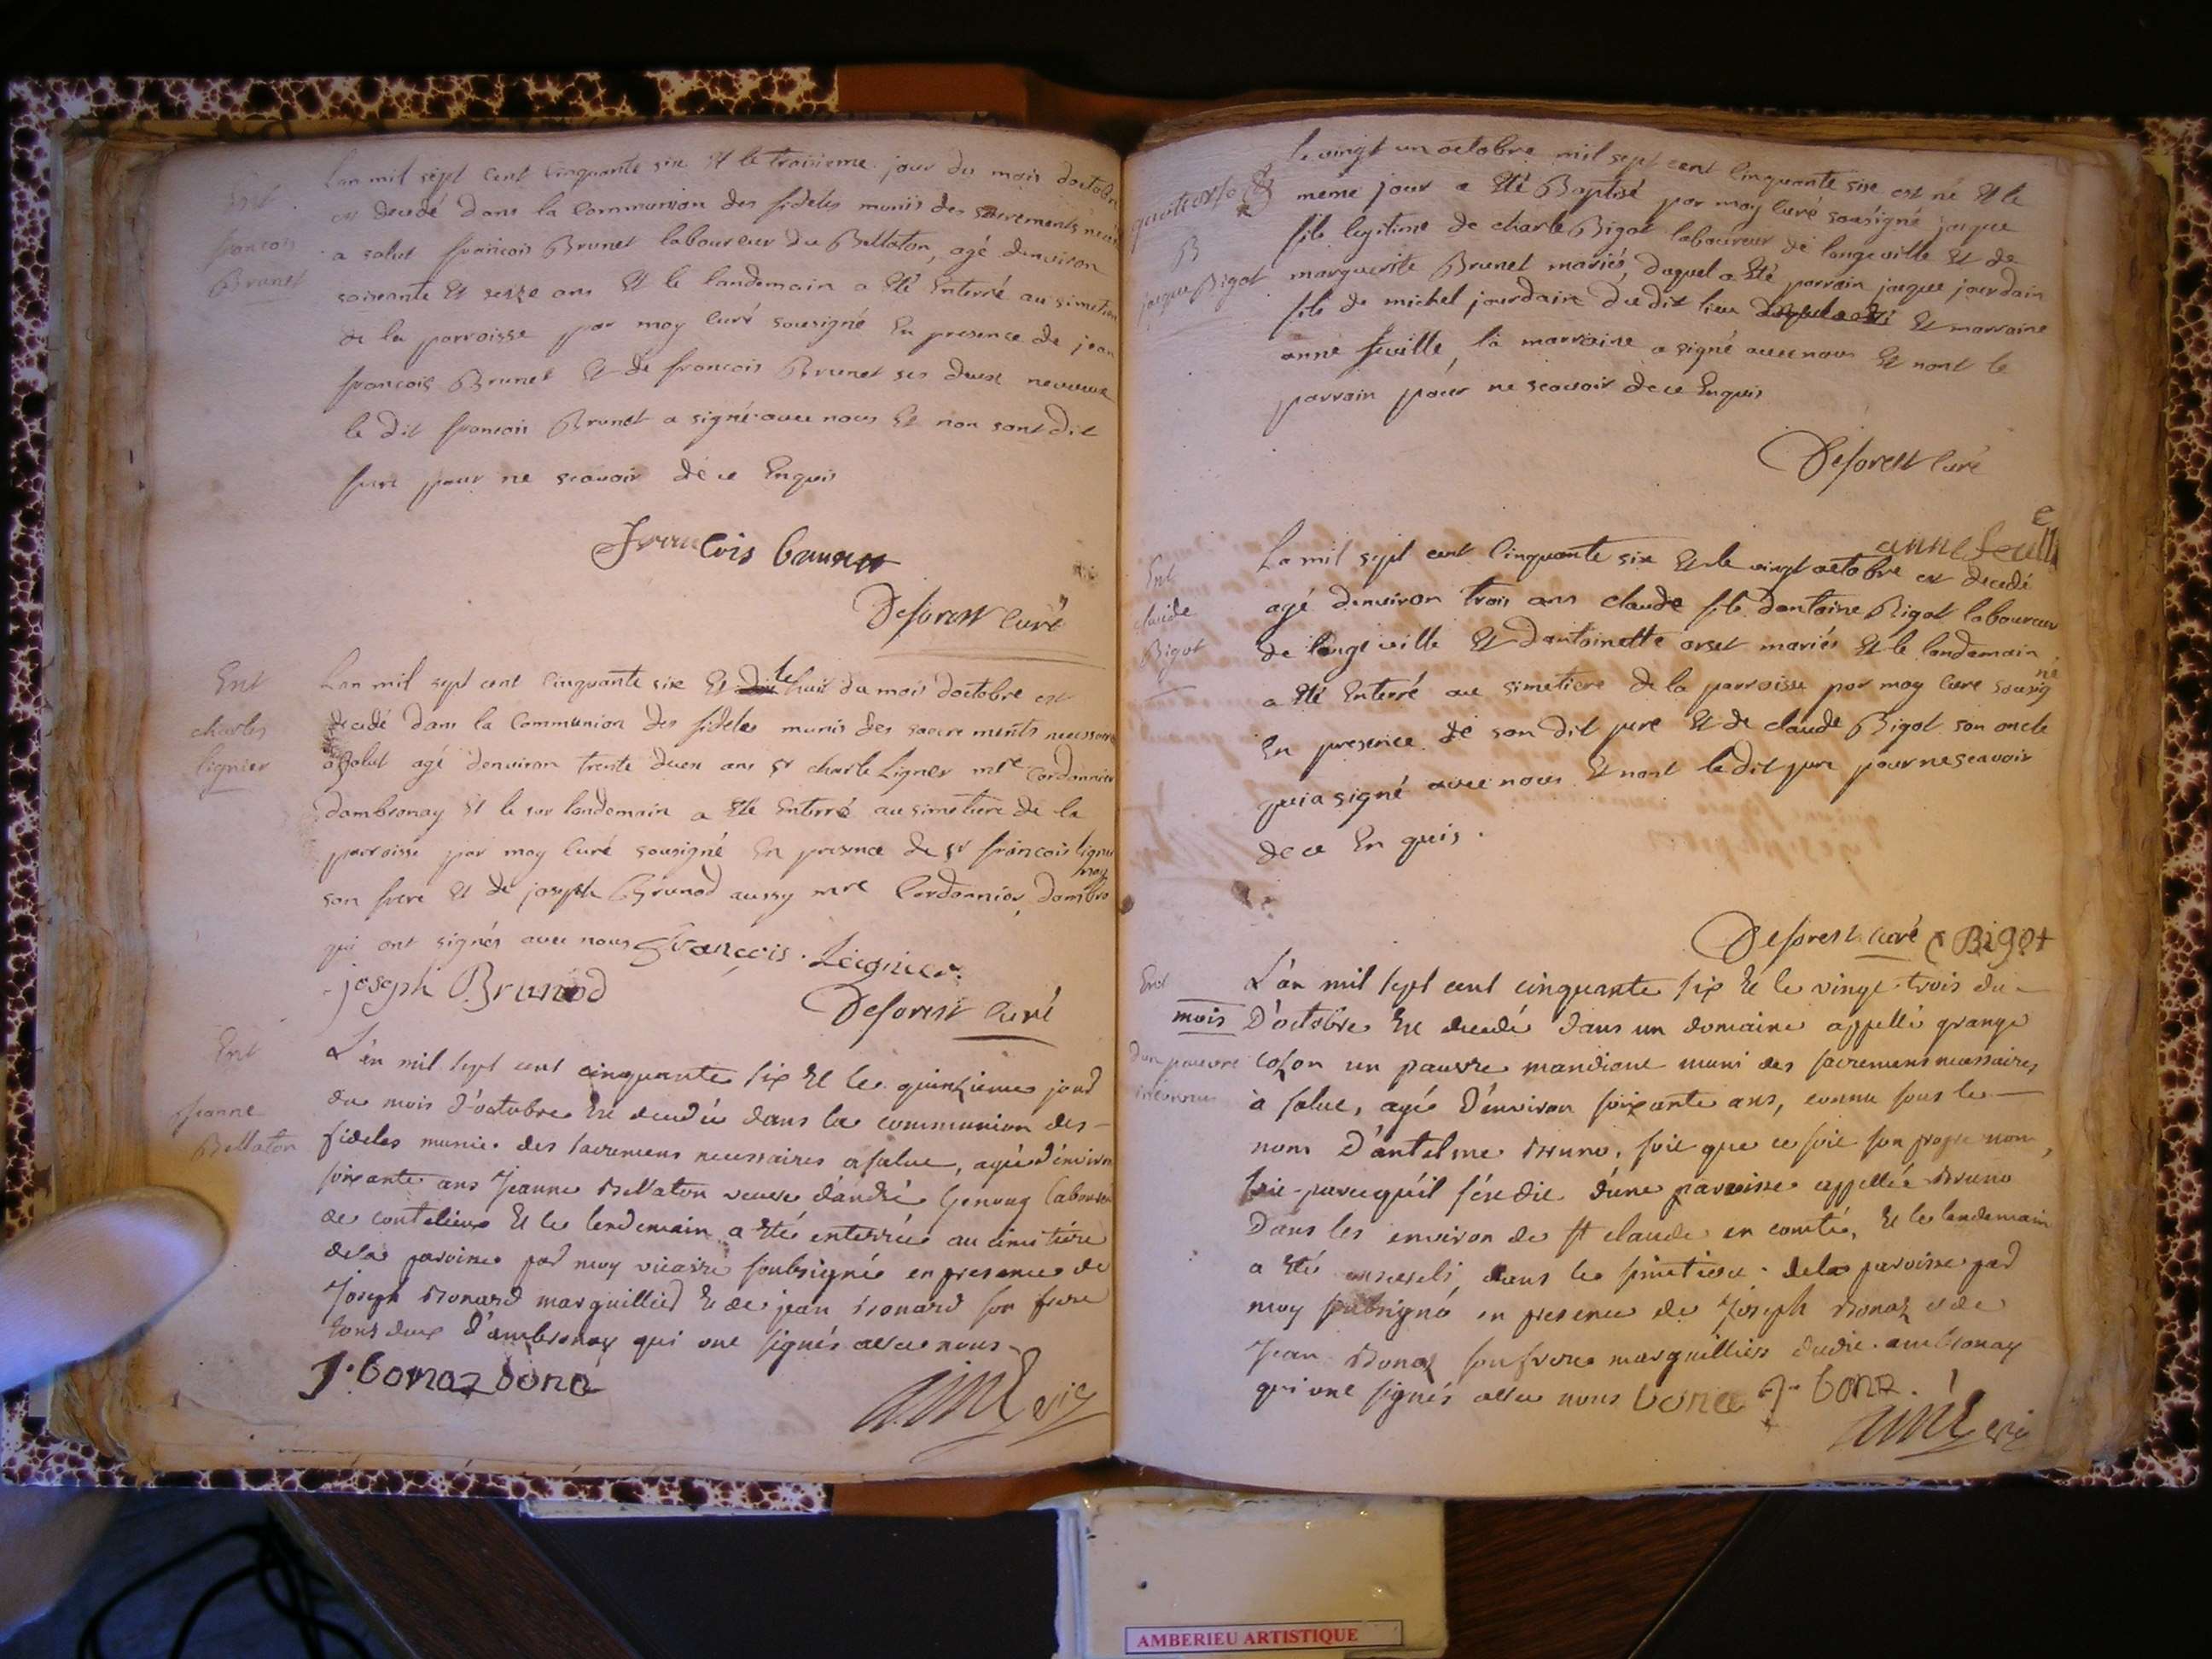 Ent
francois
Brunet
Lan mil sept cent Cinquante six Et le troisieme jour du mois doctobre
est decedé dans la Communion des fideles munis des sacrements
a salut francois Brunet laboureur du Bellaton, agé denviron
soixante Et seize ans Et le landemain a Eté Enterré au simetiere
de la parroisse par moy Curé sousigné En presence de jean
francois Brunet Et de francois Brunet ses deux neveux
le dit francois Brunet a signé avec nous Et non sont dit
pour ne scavoir de ce Enquis
Francois brunet
Deforest Curé
Ent
charles
lignier
Lan mil sept cent Cinquante six Et le huit du mois doctobre est
decedé dans la Communion des fideles munis des sacrements necessaire
a salut agé denviron trente deux ans sr charle Lignier mtre Cordonnier
dambronay Et le sur landemain a Eté Enterré au simetiere de la
parroisse par moy Curé sousigné En presence de sr francois lignier
son frere Et de joseph Brunod aussy mre Cordonnier, dambro
nay
qui ont signés avec nous Francois. Leignier.
joseph Brunod
Deforest Curé
Ent
Jeanne
Bellaton
L'an mil sept cent cinquante six Et le quinzieme jour
du mois d'octobre Est decedée dans la communion des
fideles munie des sacremens necessaires a salut, agée d'environ
soixante ans Jeanne Bellaton veuve d'andré Genoug laboureur
de coutelieux Et le lendemain a Eté enterrée au cimetière
de la paroisse par moy vicaire soubsigné en presence de
Joseph Bonard marguillier Et de jean Bonard son frere
tous deux d'ambronay qui ont signés avec nous
J. bonaz bona
vic
quatorse
B
jacque Bigot
le vingt un octobre mil sept cent Cinquante six est né Et le
même jour a Eté Baptisé par moy Curé sousigné jacque
fils legitime de charle Bigot laboureur de longeville Et de
marguerite Brunet mariés, duquel a Eté parrain jacque jourdain
fils de michel jourdain du dit lieu Et marraine
anne feuille, la marraine a signé avec nous Et nont le
parrain pour ne scavoir de ce Enquis
Deforest Curé
anne feuille
Ent
claude
Bigot
La mil sept cent Cinquante six Et le vingt octobre est decedé
agé denviron trois ans claude fils dantoine Bigot laboureur
de longeville Et dantoinette orset mariés Et le landemain
a Eté Enterré au simetiere de la parroisse par moy Cure sousig
né
En presence de son dit pere Et de claude Bigot son oncle
qui a signé avec nous Et nont le dit pere pour ne scavoir
de ce En quis.
Deforest curé C Bigot
Ent
d'un pauvre
inconnus
L'an mil sept cent cinquante six Et le vingt-trois du
mois D'octobre Est decedé dans un domaine appellé grange
cozon un pauvre mandiant muni des sacremens necessaires
à salut, agé D'environ soixante ans, connu sous le
nom D'antelme Bruno, soit que ce soit son propre nom,
soit parcequ'il s'est dit d'une paroisse appellée Bruno
Dans les environ de st claude en comté, Et le lendemain
a Eté enseveli dans le simetiere de la paroisse par
moy soubsigné en presence de Joseph Bonaz et de
Jean Bonaz son frere marguilliers dudit ambronay
qui ont signés avec nous bonaz J. bona.
vic
AMBERIEU ARTISTIQUE